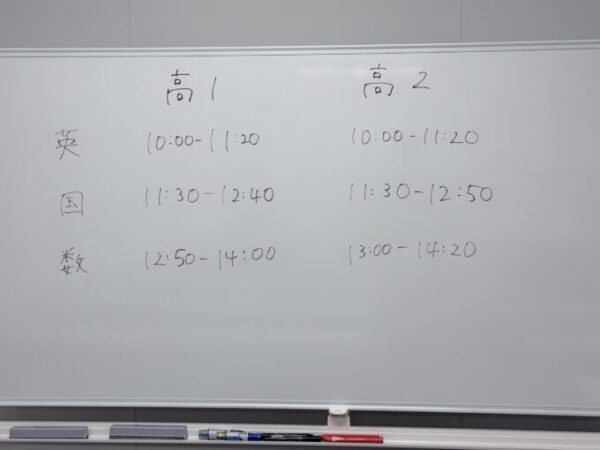 高1 高2
英 10:00-11:20 10:00-11:20
国 11:30-12:40 11:30-12:50
数 12:50-14:00 13:00-14:20